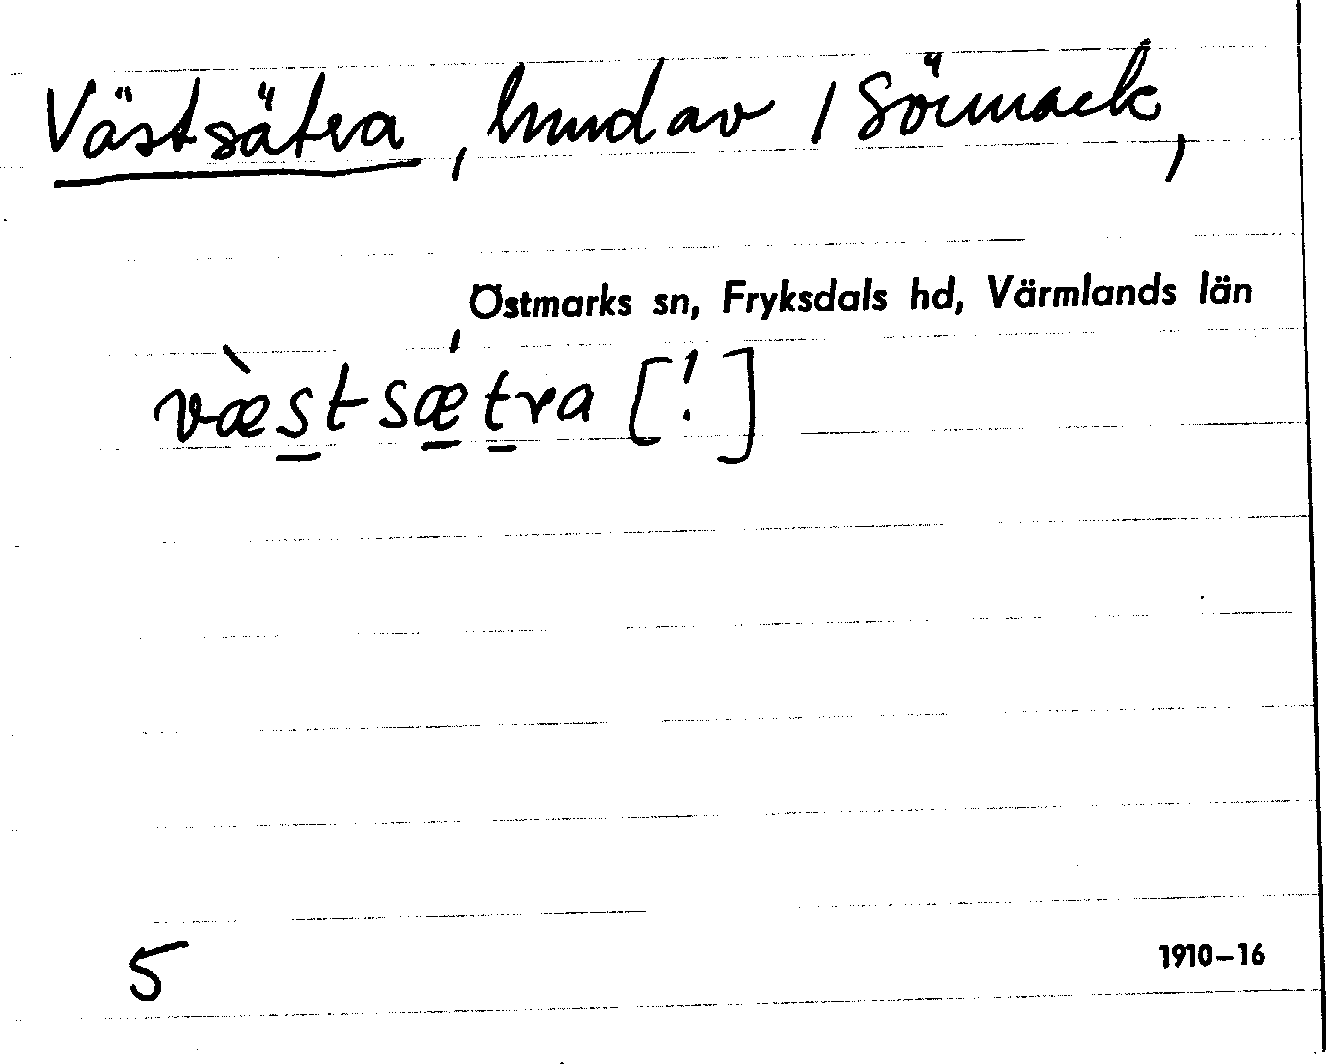 Västsätra, hmd av 1 Sörmark,
Östmarks sn, Fryksdals hd, Värmlands län
væ̀stsǽtra [!]
5
1910–16